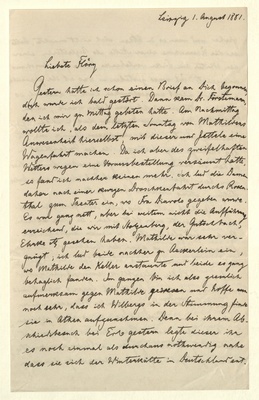 Leipzig 1. August 1881.
Liebste Fanny
Gestern hatte ich schon einen Brief an Dich begonnen,
doch wurde ich bald gestört. Dann kam Dr. Forstemann,
den ich mir zu Mittag gebeten hatte. Am Nachmittag
wollte ich, als dem letzten Sonntag von Mathildens
Anwesenheit hierselbst, mit dieser und eine
Wagenfahrt machen. Da ich aber des zweifelhaften
Wetters wegen eine Vorausbestellung versäumt hatte,
so fand ich nachher keinen mehr, ich lud die Damen
daher nach einer kurzen Droschkenfahrt durchs Rosen-
thal zum Theater ein, wo Fra Diavolo gegeben wurde.
Es war ganz nett, aber bei weitem nicht die Aufführung
erreichend, die wir mit
gesehen haben. Mathilde war sehr ver-
gnügt, ich lud beide nachher zu ein,
wo Mathilde den Keller und beide es ganz
behaglich fanden. Im ganzen bin ich also ziemlich
aufmerksam gegen Mathilde gewesen und hoffe um
noch sehr, dass ich Wilbergs in der Stimmung finde
sie in Athen aufzunehmen. Denn bei ihrem Ab-
schiedsbesuch bei gestern legte dieser ihr
es noch einmal als durchaus nothwendig nahe
dass sie sich der Winterkälte in Deutschland ent-